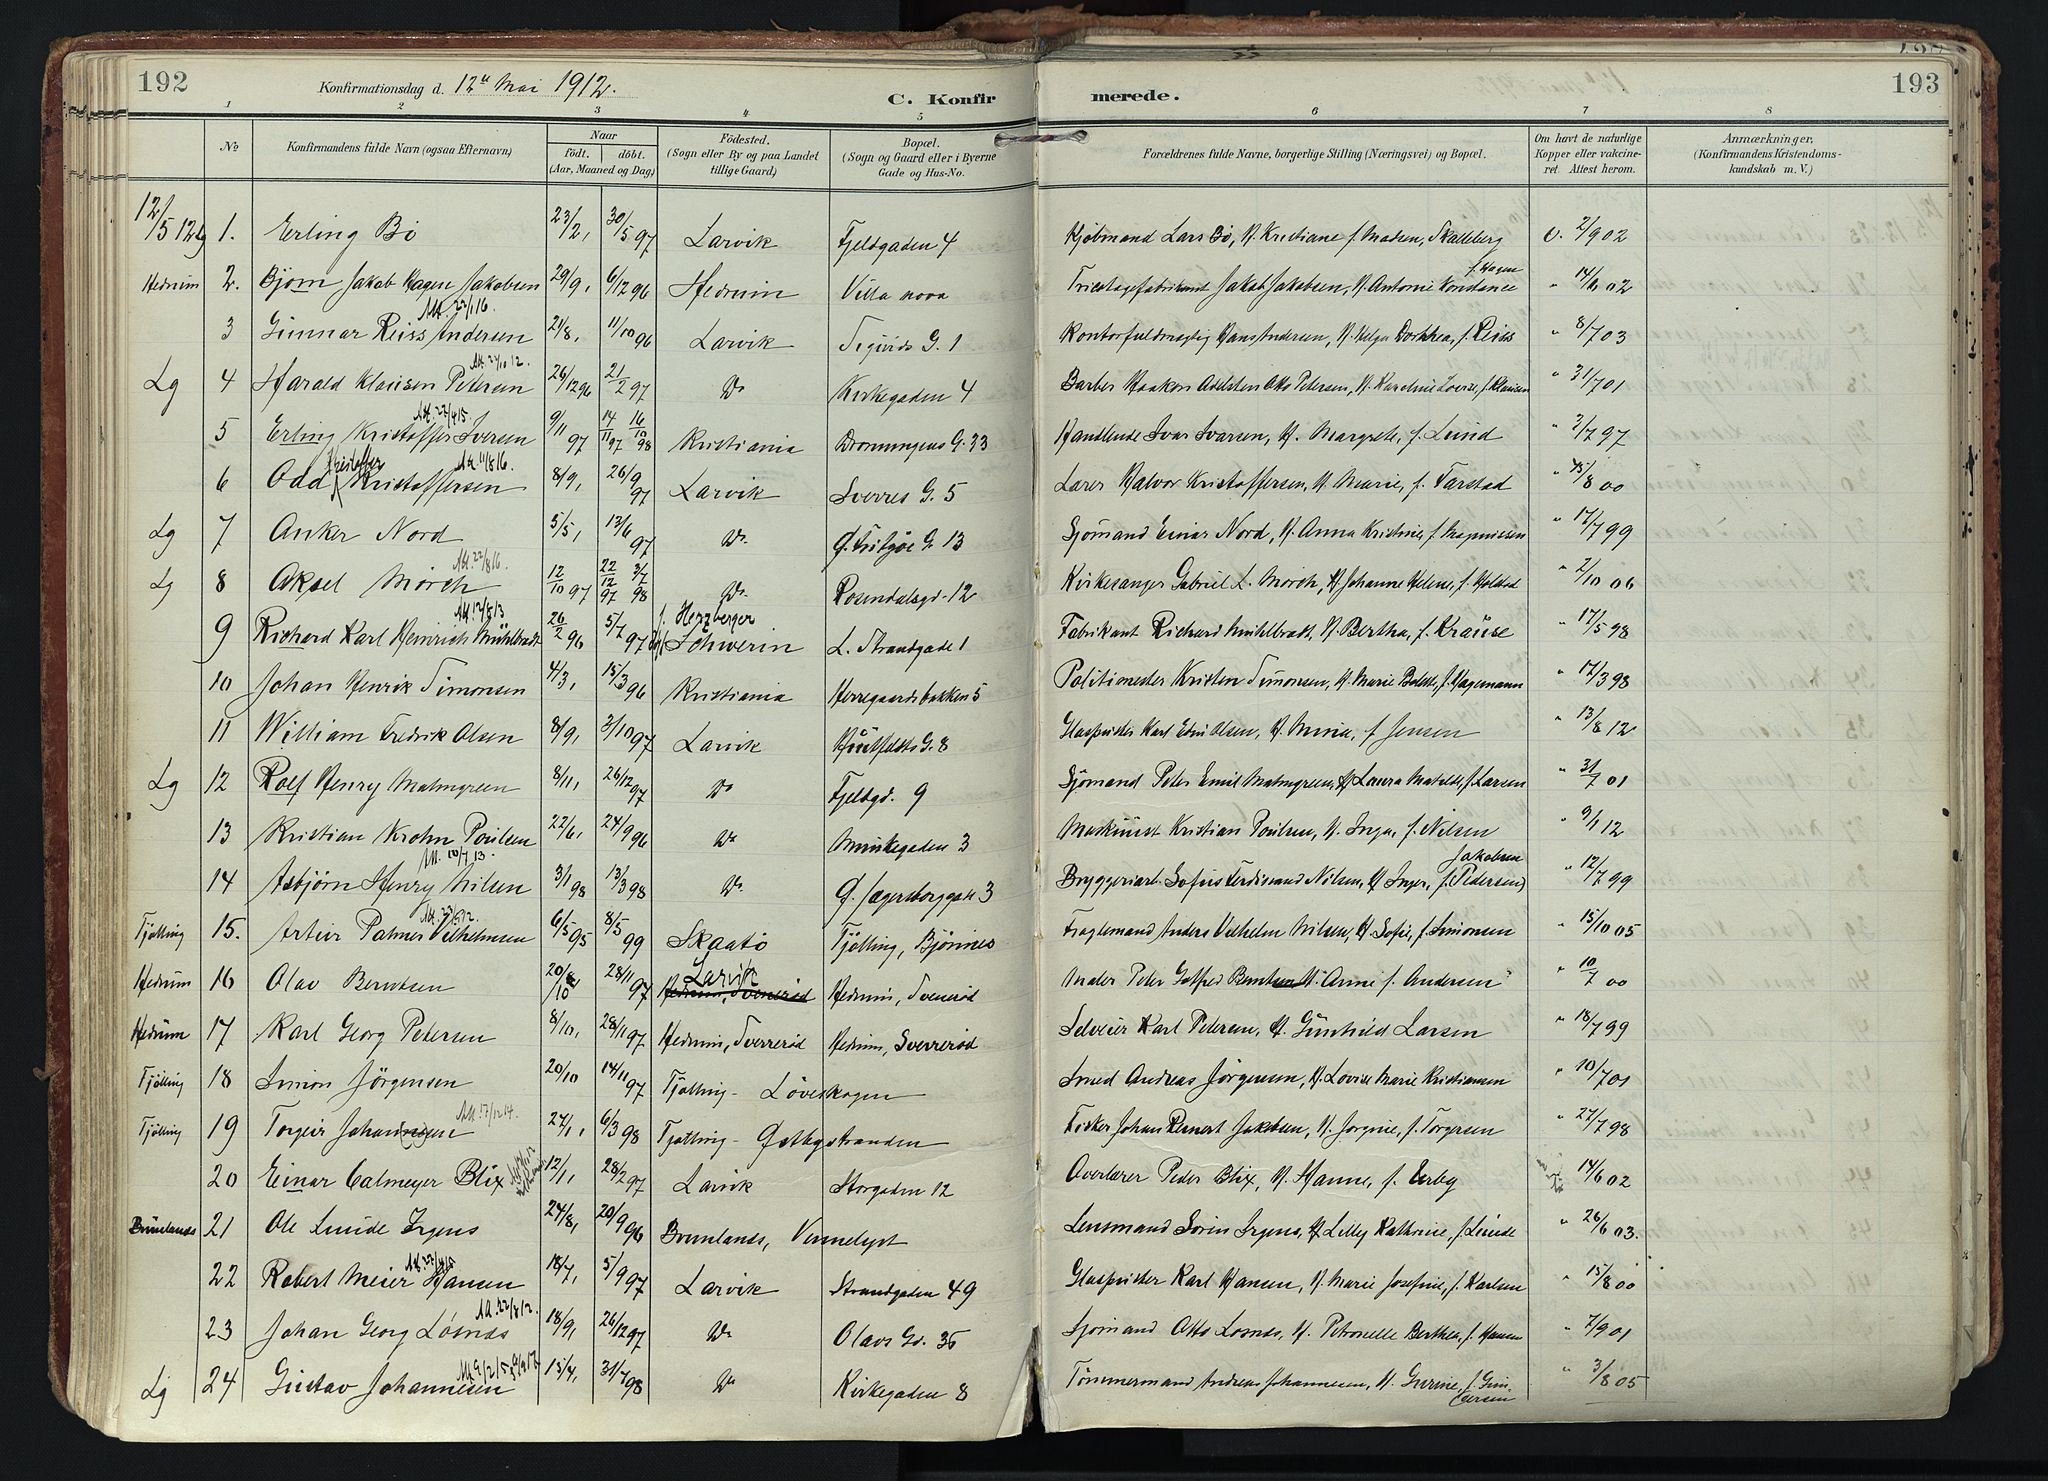 192
Konfirmationsdag d. 12te Mai 1912.
C. Konfirmerede.
193
1 2 3 4 5 6 7 8
No
Konfirmandens fulde Navn (ogsaa Efternavn)
Naar
födt. döbt.
(Aar, Maaned og Dag)
Födested.
(Sogn eller By og paa Landet
tillige Gaard)
Bopæl.
(Sogn og Gaard eller i Byerne
Gade og Hus-No.
Forældrenes fulde Navne, borgerlige Stilling (Næringsvei) og Bopæl.
Om havt de naturlige
Kopper eller vakcine-
ret Attest herom.
Anmærkninger,
(Konfirmandens Kristendoms-
kundskab m. V.)
12/5 12 Lg 1. Erling Bö 23/2, 30/5 97 Larvik Fjeldgaden 4 Kjöbmand Lars Bö, H. Kristiane f. Madsen, Skalleberg v. 2/9 02
Hedrum 2. Bjorn Jakob Hagen Jakobsen 29/9, 6/12 96 Hedrum Villa nova Tricotagefabrikant Jakob Jakobsen, H. Antonie Konstance f. Hagen " 14/6 02
3 Gunnar Reiss Andersen Att. 22/1 16. 21/8, 11/10 96 Larvik Sigurds G. 1 Kontorfuldmægtig Hans Andersen, H. Helga Dorthea, f. Reiss " 8/7 03
Lg 4 Harald Klausen Petersen Att. 22/10 12. 26/12 96 21/2 97 Do Kirkegaden 4 Barber Haakon Adelsten Otto Petersen, H. Karoline Lovise, f. Klausen " 31/7 01
5 Erling Kristoffer Iversen Att. 22/4 15 9/11 97 14/11 97 16/10 98 Kristiania Dronningens G. 33 Handlende Ivar Ivarsen, H. Margrete, f. Lund " 2/7 97
6 Odd Kristoffer Kristoffersen Att. 11/8 16. 8/9, 26/9 97 Larvik Sverres G. 5 Lærer Halvor Kristoffersen, H. Marie, f. Farstad " 15/8 00
Lg 7 Anker Nord 5/5, 13/6 97 Do Ø. Fritzöe G. 13 Sjömand Einar Nord, H. Anna Kristine f. Magnussen " 12/7 99
Lg 8 Aksel Mörch Att. 22/8 16. 12/10 97 22/12 97 3/7 98 Do Rosendalsgd. 12 Kirkesanger Gabriel L. Mörch, H. Johanne Helene, f. Holstad " 2/10 06
9 Richard Karl Heinrich Mühlbradt Att. 12/8 13 26/2 96 5/7 97 f. Herzberger Schwerin L. Strandgade 1 Fabrikant Richard Mühlbradt, H. Bertha, f. Krause " 17/5 98
10 Johan Henrik Simonsen 4/3, 15/3 96 Kristiania Herregaardsbakken 5 Politimester Kristen Simonsen, H. Marie Bolette, f. Hagemann " 17/3 98
11 William Fredrik Olsen 8/9, 3/10 97 Larvik Huitfeldts G. 8 Glaspuster Karl Edvin Olsen, H. Mina, f Jensen " 13/8 12
Lg 12 Rolf Henry Malmgreen 8/11, 26/12 97 Do Fjeldgd. 9 Sjömand Peter Emil Malmgreen, H. Laura Matilde, f. Larsen " 31/7 01
13 Kristian Krohn Poulsen 22/6, 24/9 96 Do Munkegaden 3 Maskinist Kristian Poulsen, H. Inga, f. Nilsen " 9/1 12
14 Asbjörn Henry Nilsen Att. 10/7 13. 3/1 98 13/3 98 Do Ø. Jægersborggate 3 Bryggeriarb. Sofus Ferdinand Nilsen, H. Inger, f. Jakobsen (Pedersen) " 12/7 99
Tjölling 15. Artur Palmer Vilhelmsen Att. 23/5 12. 6/5 95 8/5 99 Skaatö Tjölling, Björnnes Fragtemand Anders Vilhelm Nilsen, H. Sofie, f. Simonsen " 15/10 05
Hedrum 16 Olav Berntsen 20/10 28/11 97 Larvik Hedrum, Sverreröd Hedrum, Sverreröd Maler Peter Gotfred Berntsen H. Anne f. Andersen " 10/7 00
Hedrum 17 Karl Georg Petersen 8/10, 28/11 97 Hedrum, Sverreröd Hedrum, Sverreröd Selveier Karl Petersen, H. Gunhild Larsen " 18/7 99
Tjölling 18 Simon Jörgensen 20/10 14/11 97 Tjölling - Löveskogen Smed Andreas Jörgensen, H. Lovise Marie Kristiansen " 10/7 01
Tjölling 19 Torgeir Johannesen Att. 17/12 14. 27/1, 6/3 98 Tjölling - Östbystranden Fisker Johan Reinert Jakobsen, H. Jorgine, f. Torgersen " 27/7 98
20 Einar Calmeyer Blix 12/1, 28/2 97 Larvik Storgaden 12 Overlærer Peder Blix, H. Hanne, f. Erby 14/6 02
Brunlanes 21 Ole Lunde Irgens 24/8, 20/9 96 Brunlanes, Vennelyst Lensmand Sören Irgens, H. Lilly Kathrine, f. Lunde " 26/6 03.
22 Robert Meier Hansen Att. 22/4 15 18/7, 5/9 97 Larvik Strandgaden 49 Glaspuster Karl Hansen, H. Marie Josefine, f. Karlsen " 15/8 00
23 Johan Georg Løsnes Att. 22/8 12. 18/9, 26/12 97 Do Olavs Gd. 35 Sjomand Otto Losnes, H. Petronelle Berthea, f. Hansen " 7/9 01
Lg 24 Gustav Johannesen 15/4, 31/7 98 Do Kirkegaden 8 Tömmermand Andreas Johannesen, H. Gurine, f. Gundersen " 3/8 05